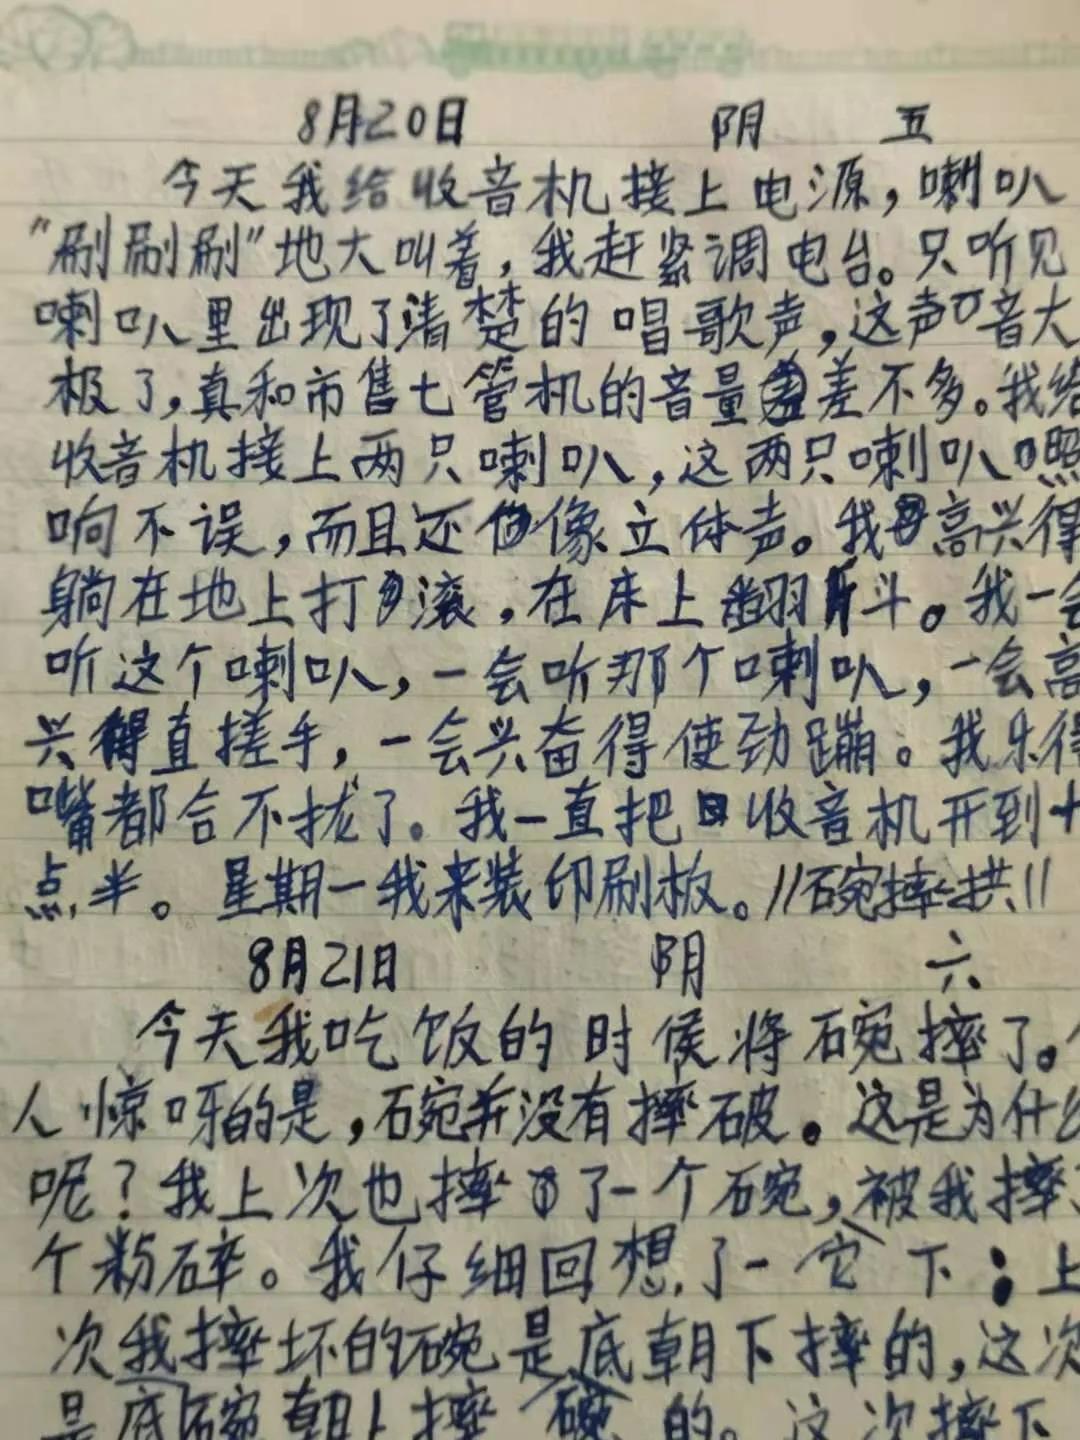 8月20日 阴 五
今天我给收音机接上电源，喇叭
"刷刷刷"地大叫着，我赶紧调电台。只听见
喇叭里出现了清楚的唱歌声，这声音大
极了，真和市售七管机的音量差不多。我给
收音机接上两只喇叭，这两只喇叭照
响不误，而且还像立体声。我高兴得
躺在地上打滚，在床上翻斤斗。我一会
听这个喇叭，一会听那个喇叭，一会高
兴得直搓手，一会兴奋得使劲蹦。我乐得
嘴都合不拢了。我一直把收音机开到十
点半。星期一我来装印刷板。//碗摔 \\
8月21日 阴 六
今天我吃饭的时候将碗摔了。
人惊呀的是，碗并没有摔破。这是为什么
呢？我上次也摔了一个碗，被我摔
个粉碎。我仔细回想了一下：上
次我摔坏的碗是底朝下摔的，这次
是底朝上摔的。这次摔下